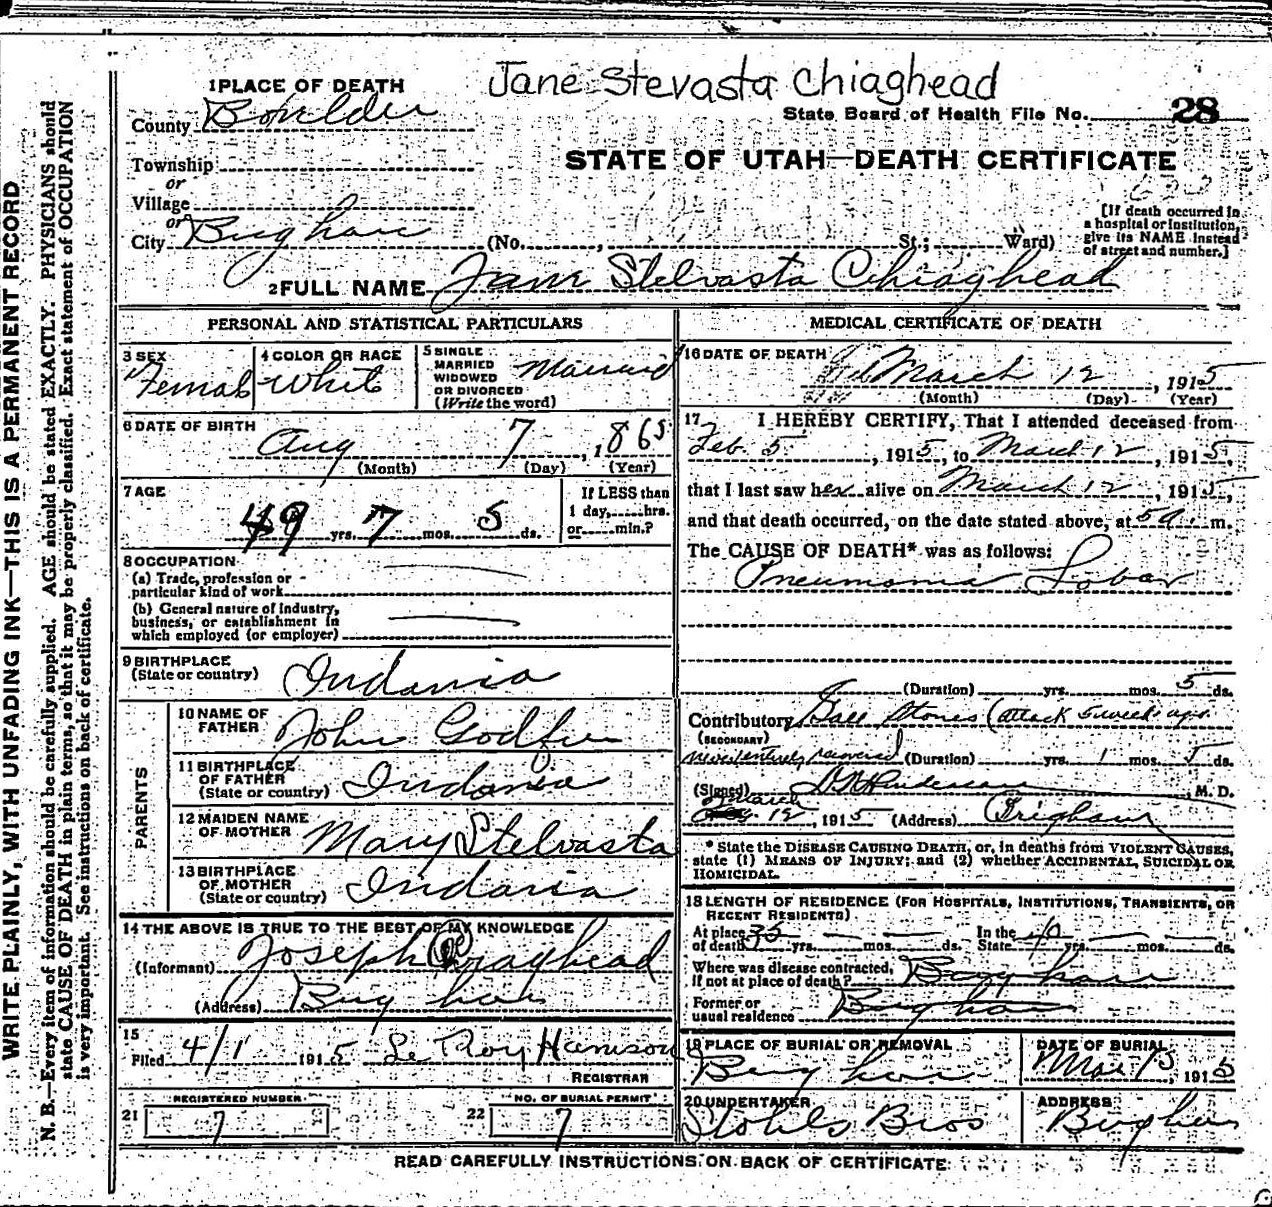 Jane Stevasta Chiaghead
1 PLACE OF DEATH
County Boxelder
State Board of Health File No. 28
Township
or
Village
or
City Brigham
STATE OF UTAH—DEATH CERTIFICATE
(No. , St.; Ward)
[If death occurred in
a hospital or institution,
give its NAME instead
of street and number.]
2 FULL NAME Jane Stelvasta Chiaghead
PERSONAL AND STATISTICAL PARTICULARS
3 SEX
Female
4 COLOR OR RACE
White
5 SINGLE
MARRIED
WIDOWED
OR DIVORCED
(Write the word)
Married
6 DATE OF BIRTH
Aug 7, 1865
(Month) (Day) (Year)
7 AGE
49 yrs. 7 mos. 5 ds.
If LESS than
1 day, hrs.
or min.?
8 OCCUPATION
(a) Trade, profession or
particular kind of work
(b) General nature of industry,
business, or establishment in
which employed (or employer)
9 BIRTHPLACE
(State or country) Indania
PARENTS
10 NAME OF
FATHER John Godfre
11 BIRTHPLACE
OF FATHER
(State or country) Indania
12 MAIDEN NAME
OF MOTHER Mary Stelvasta
13 BIRTHPLACE
OF MOTHER
(State or country) Indania
14 THE ABOVE IS TRUE TO THE BEST OF MY KNOWLEDGE
(Informant) Joseph Craghead
(Address) Brigham
15
Filed 4/1 1915 Le Roy Harrison
REGISTRAR
REGISTERED NUMBER
21 7
NO. OF BURIAL PERMIT
22 7
MEDICAL CERTIFICATE OF DEATH
16 DATE OF DEATH
March 12, 1915
(Month) (Day) (Year)
17 I HEREBY CERTIFY, That I attended deceased from
Feb. 5, 1915, to March 12, 1915,
that I last saw her alive on March 12, 1915,
and that death occurred, on the date stated above, at 5 a. m.
The CAUSE OF DEATH* was as follows:
Pneumonia Lobar
(Duration) yrs. mos. 5 ds.
Contributory Gall Stones (attack 5 weeks ago
(SECONDARY)
never entirely recovered) (Duration) yrs. 1 mos. 5 ds.
(Signed) , M. D.
March 12, 1915 (Address) Brigham
* State the DISEASE CAUSING DEATH, or, in deaths from VIOLENT CAUSES,
state (1) MEANS OF INJURY; and (2) whether ACCIDENTAL, SUICIDAL OR
HOMICIDAL.
18 LENGTH OF RESIDENCE (FOR HOSPITALS, INSTITUTIONS, TRANSIENTS, OR
RECENT RESIDENTS)
At place of death 35 yrs. mos. ds. In the State 40 yrs. mos. ds.
Where was disease contracted,
if not at place of death? Brigham
Former or
usual residence Brigham
19 PLACE OF BURIAL OR REMOVAL
Brigham
DATE OF BURIAL
Mar 15, 1915
20 UNDERTAKER
Stohls Bros
ADDRESS
Brigham
READ CAREFULLY INSTRUCTIONS ON BACK OF CERTIFICATE.
WRITE PLAINLY, WITH UNFADING INK—THIS IS A PERMANENT RECORD
N. B.—Every item of information should be carefully supplied. AGE should be stated EXACTLY. PHYSICIANS should
state CAUSE OF DEATH in plain terms, so that it may be properly classified. Exact statement of OCCUPATION
is very important. See instructions on back of certificate.